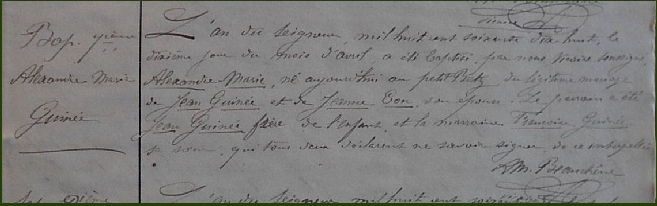 Vicaire
Bap. 9ième
Alexandre Marie
Guinée
L'an du Seigneur mil huit cent soixante dix huit, le
dixième jour du mois d'avril a été baptisé par nous Vicaire soussigné,
Alexandre Marie, né aujourd'hui au petit du légitime mariage
de Jean Guinée et de Jeanne Eon son épouse. Le parrain a été
Jean Guinée frère de l'enfant, et la marraine Françoise Guinée
sa soeur, qui tous deux déclarent ne savoir signer de ce interpellés
L'an du Seigneur mil huit cent soixante